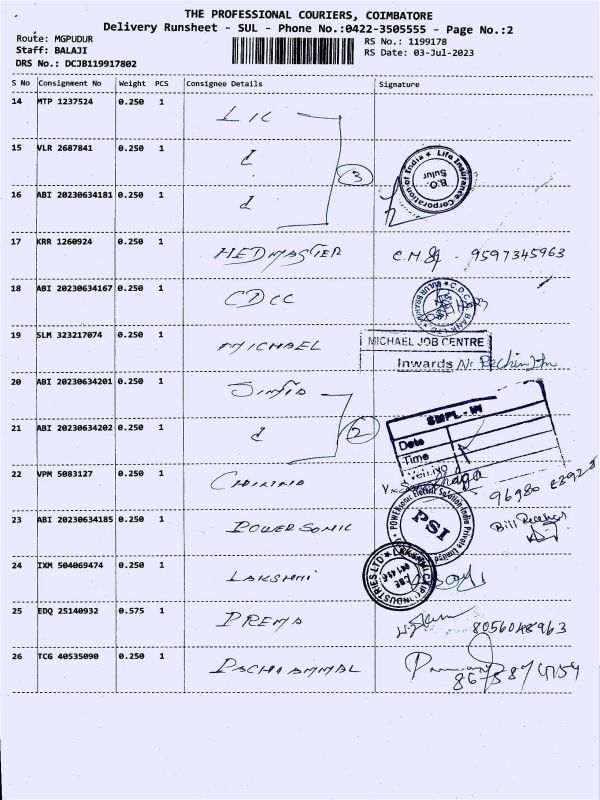 THE PROFESSIONAL COURIERS, COIMBATORE
Delivery Runsheet - SUL - Phone No.:0422-3505555 - Page No.:2
Route: MGPUDUR
RS No.: 1199178
Staff: BALAJI
RS Date: 03-Jul-2023
DRS No.: DCJB119917802
S No Consignment No Weight PCS Consignee Details Signature
14 MTP 1237524 0.250 1 LIC
15 VLR 2687841 0.250 1
Life Insurance Corporation of India
B.O. Sulur
3
16 ABI 20230634181 0.250 1
17 KRR 1260924 0.250 1 HEDMASTER C.M. 9597345963
18 ABI 20230634167 0.250 1 CDCC
19 SLM 323217074 0.250 1 MICHAEL
MICHAEL JOB CENTRE
Inwards No.
20 ABI 20230634201 0.250 1
SMPL - IN
Date
Time
21 ABI 20230634202 0.250 1
2
22 VPM 5083127 0.250 1
23 ABI 20230634185 0.250 1 POWERSONIC
PSI
24 IXM 504069474 0.250 1 LAKSHMI
25 EDQ 25140932 0.575 1 PREMA 8056048963
26 TCG 40535090 0.250 1